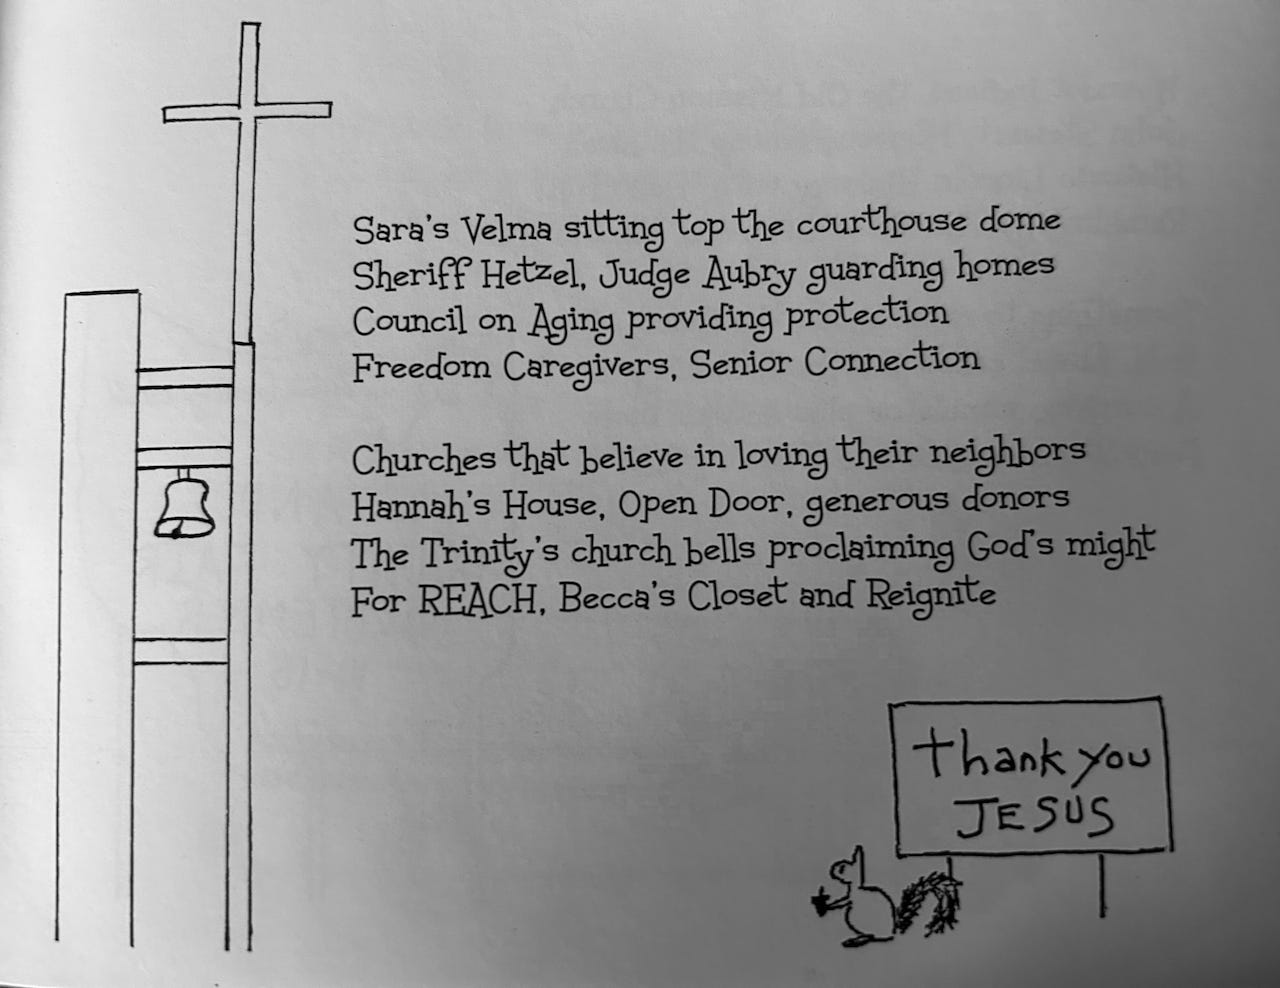 Sara's Velma sitting top the courthouse dome
Sheriff Hetzel, Judge Aubry guarding homes
Council on Aging providing protection
Freedom Caregivers, Senior Connection
Churches that believe in loving their neighbors
Hannah's House, Open Door, generous donors
The Trinity's church bells proclaiming God's might
For REACH, Becca's Closet and Reignite
Thank you
JESUS